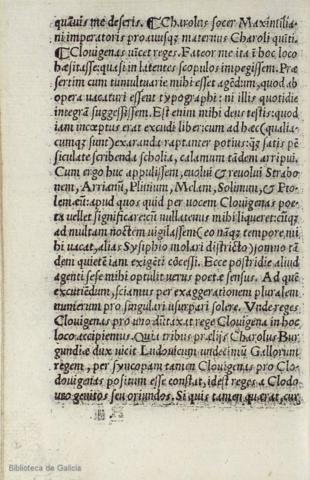 quāuis me deseris. ¶ Charolus socer Maximilia-
ni imperatoris proauusq; maternus Charoli quīti.
¶ Clouigenas uīcet reges. Fateor me ita ī hoc loco
hæsitasse: quasi in latentes scopulos impegissem. Præ
sertim cum tumultuarie mihi esset agēdum, quod ab
opera uacaturi essent typographi: ni illis quotidie
integrā suggessissem. Est enim mihi deus testis: quod
iam incœptus erat excudi liber: cum ad hæc (qualia-
cumq; sunt) exaranda raptanter potius: q̃ satis pē
siculate scribenda scholia, calamum tādem arripui.
Cum ergo huc appulissem, euolui & reuolui Strabo
nem, Arrianū, Plinium, Melam, Solinum, & Pto-
lemæū: apud quos quid per uocem Clouigenas poe-
ta uellet significare: cū nullatenus mihi liqueret: cūq;
ad multam noctem uigilassem (eo nāq; tempore mi-
hi uacat, alias Sysiphio molari districto) somno tā
dem quietē iam exigēti cōcessi. Ecce postridie aliud
agenti sese mihi optulit uerus poetæ sensus. Ad quē
excutiēdum, sciamus per exaggerationem pluralem
numerum pro singulari usurpari solere. Vnde reges
Clouigenas pro uno dūtaxat rege Clouigena in hoc
loco accipiemus. Qui tribus prælijs Charolus Bur
gundiæ dux uicit Ludouicum undecimū Gallorum
regem, per syncopam tamen Clouigenas pro Clo-
douigenas positum esse constat, id est reges a Clodo
uæo genitos seu oriundos. Si quis tamen quærat, cur
Biblioteca de Galicia